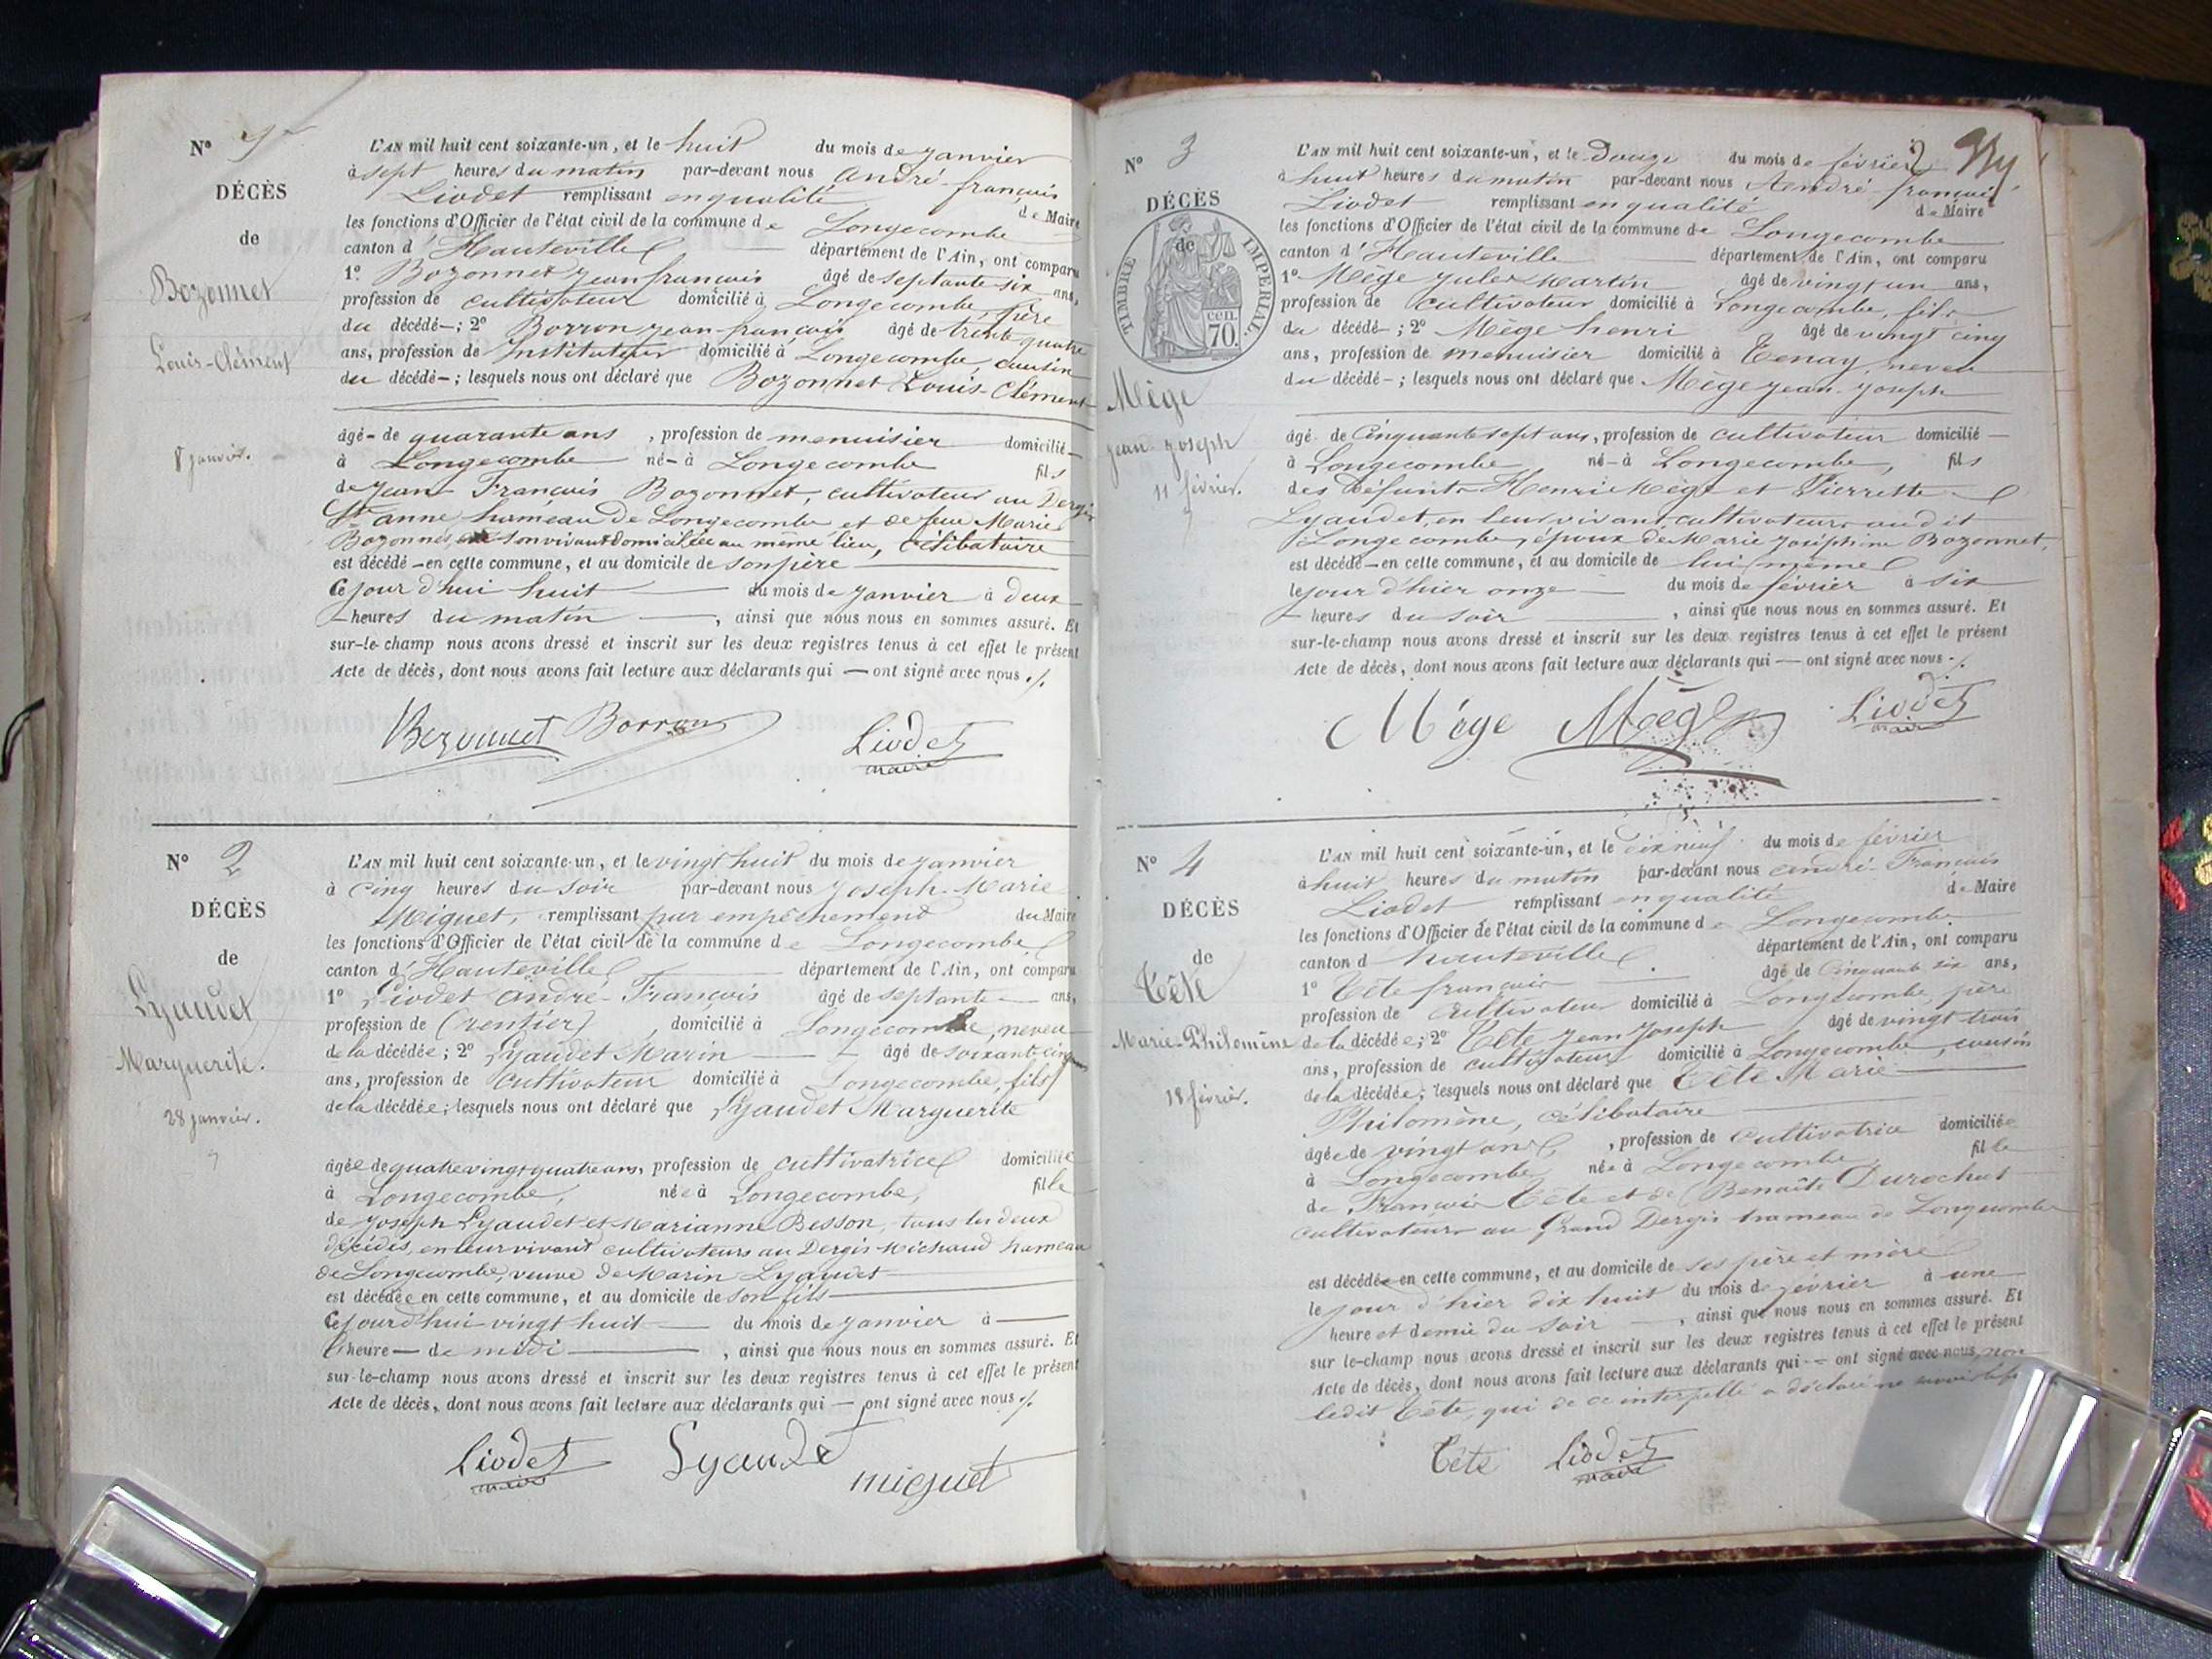 N° 1er
DÉCÈS
de
Bozonnet
Louis-Clément
8 janvier.
L'AN mil huit cent soixante-un, et le huit du mois de janvier
à sept heures du matin par-devant nous André françois
Liodet remplissant en qualité de Maire
les fonctions d'Officier de l'état civil de la commune de Longecombe
canton d'Hauteville département de l'Ain, ont comparu
1° Bozonnet jean françois âgé de septante-six ans,
profession de cultivateur domicilié à Longecombe, père
du décédé ; 2° Borron jean-françois âgé de trente quatre
ans, profession de Instituteur domicilié à Longecombe, cousin
du décédé ; lesquels nous ont déclaré que Bozonnet Louis-Clément
âgé de quarante ans, profession de menuisier domicilié
à Longecombe né à Longecombe fils
de Jean François Bozonnet, cultivateur au Dergis
Ste anne hameau de Longecombe et de feue Marie
Bozonnet, en son vivant domiciliée au même lieu, célibataire
est décédé en cette commune, et au domicile de son père
Ce jour d'hui huit du mois de janvier à deux
heures du matin, ainsi que nous nous en sommes assuré. Et
sur-le-champ nous avons dressé et inscrit sur les deux registres tenus à cet effet le présent
Acte de décès, dont nous avons fait lecture aux déclarants qui — ont signé avec nous ./.
Bozonnet Borron Liodet
maire
N° 2
DÉCÈS
de
Lyaudet
Marguerite.
28 janvier.
L'AN mil huit cent soixante-un, et le vingt huit du mois de janvier
à cinq heures du soir par-devant nous Joseph-Marie
Miguet, remplissant par empêchement du Maire
les fonctions d'Officier de l'état civil de la commune de Longecombe
canton d'Hauteville département de l'Ain, ont comparu
1° Liodet André-François âgé de septante ans,
profession de (rentier), domicilié à Longecombe, neveu
de la décédée ; 2° Lyaudet Marin âgé de soixante cinq
ans, profession de cultivateur domicilié à Longecombe, fils
de la décédée ; lesquels nous ont déclaré que Lyaudet Marguerite
âgée de quatre vingt quatre ans, profession de cultivatrice domiciliée
à Longecombe, née à Longecombe, fille
de Joseph Lyaudet et Marianne Besson, tous les deux
décédés, en leur vivant cultivateurs au Dergis Michaud hameau
de Longecombe, veuve de Marin Lyaudet
est décédée en cette commune, et au domicile de son fils
Ce jourd'hui vingt huit du mois de janvier à —
l'heure — de midi, ainsi que nous nous en sommes assuré. Et
sur-le-champ nous avons dressé et inscrit sur les deux registres tenus à cet effet le présent
Acte de décès, dont nous avons fait lecture aux déclarants qui — ont signé avec nous ./.
Liodet Lyaudet miguet
maire
2
N° 3
DÉCÈS
de
TIMBRE IMPERIAL.
cen.
70.
Mège
jean-joseph
11 février.
L'AN mil huit cent soixante-un, et le Douze du mois de février
à huit heures du matin par-devant nous André françois
Liodet remplissant en qualité de Maire
les fonctions d'Officier de l'état civil de la commune de Longecombe
canton d'Hauteville département de l'Ain, ont comparu
1° Mège jules Martin âgé de vingt un ans,
profession de cultivateur domicilié à Longecombe, fils
du décédé ; 2° Mège henri âgé de vingt cinq
ans, profession de menuisier domicilié à Tenay, neveu
du décédé ; lesquels nous ont déclaré que Mège jean-joseph
âgé de Cinquante sept ans, profession de cultivateur domicilié
à Longecombe né à Longecombe, fils
des défunts Henri Mège et Pierrette
Lyaudet, en leur vivant cultivateurs audit
Longecombe, époux de Marie joséphine Bozonnet,
est décédé en cette commune, et au domicile de lui même
le jour d'hier onze du mois de février à six
heures du soir, ainsi que nous nous en sommes assuré. Et
sur-le-champ nous avons dressé et inscrit sur les deux registres tenus à cet effet le présent
Acte de décès, dont nous avons fait lecture aux déclarants qui — ont signé avec nous ./.
Mège Mège Liodet
maire
N° 4
DÉCÈS
de
Tête
Marie-Philomène
18 février.
L'AN mil huit cent soixante-un, et le dix neuf du mois de février
à huit heures du matin par-devant nous André-François
Liodet remplissant en qualité de Maire
les fonctions d'Officier de l'état civil de la commune de Longecombe
canton d hauteville département de l'Ain, ont comparu
1° Tête françois âgé de Cinquante six ans,
profession de cultivateur domicilié à Longecombe, père
de la décédée ; 2° Tête Jean Joseph âgé de vingt trois
ans, profession de cultivateur domicilié à Longecombe, cousin
de la décédée ; lesquels nous ont déclaré que Tête Marie
Philomène, célibataire
âgée de vingt ans, profession de Cultivatrice domiciliée
à Longecombe née à Longecombe, fille
de François Tête et de Benoîte Durochat
cultivateurs au Grand Dergis hameau de Longecombe
est décédée en cette commune, et au domicile de ses père et mère
le jour d'hier dix huit du mois de février à une
heure et demie du soir, ainsi que nous nous en sommes assuré. Et
sur le-champ nous avons dressé et inscrit sur les deux registres tenus à cet effet le présent
Acte de décès, dont nous avons fait lecture aux déclarants qui — ont signé avec nous, non
ledit Tête, qui de ce interpellé a déclaré ne savoir le
Tête Liodet
maire